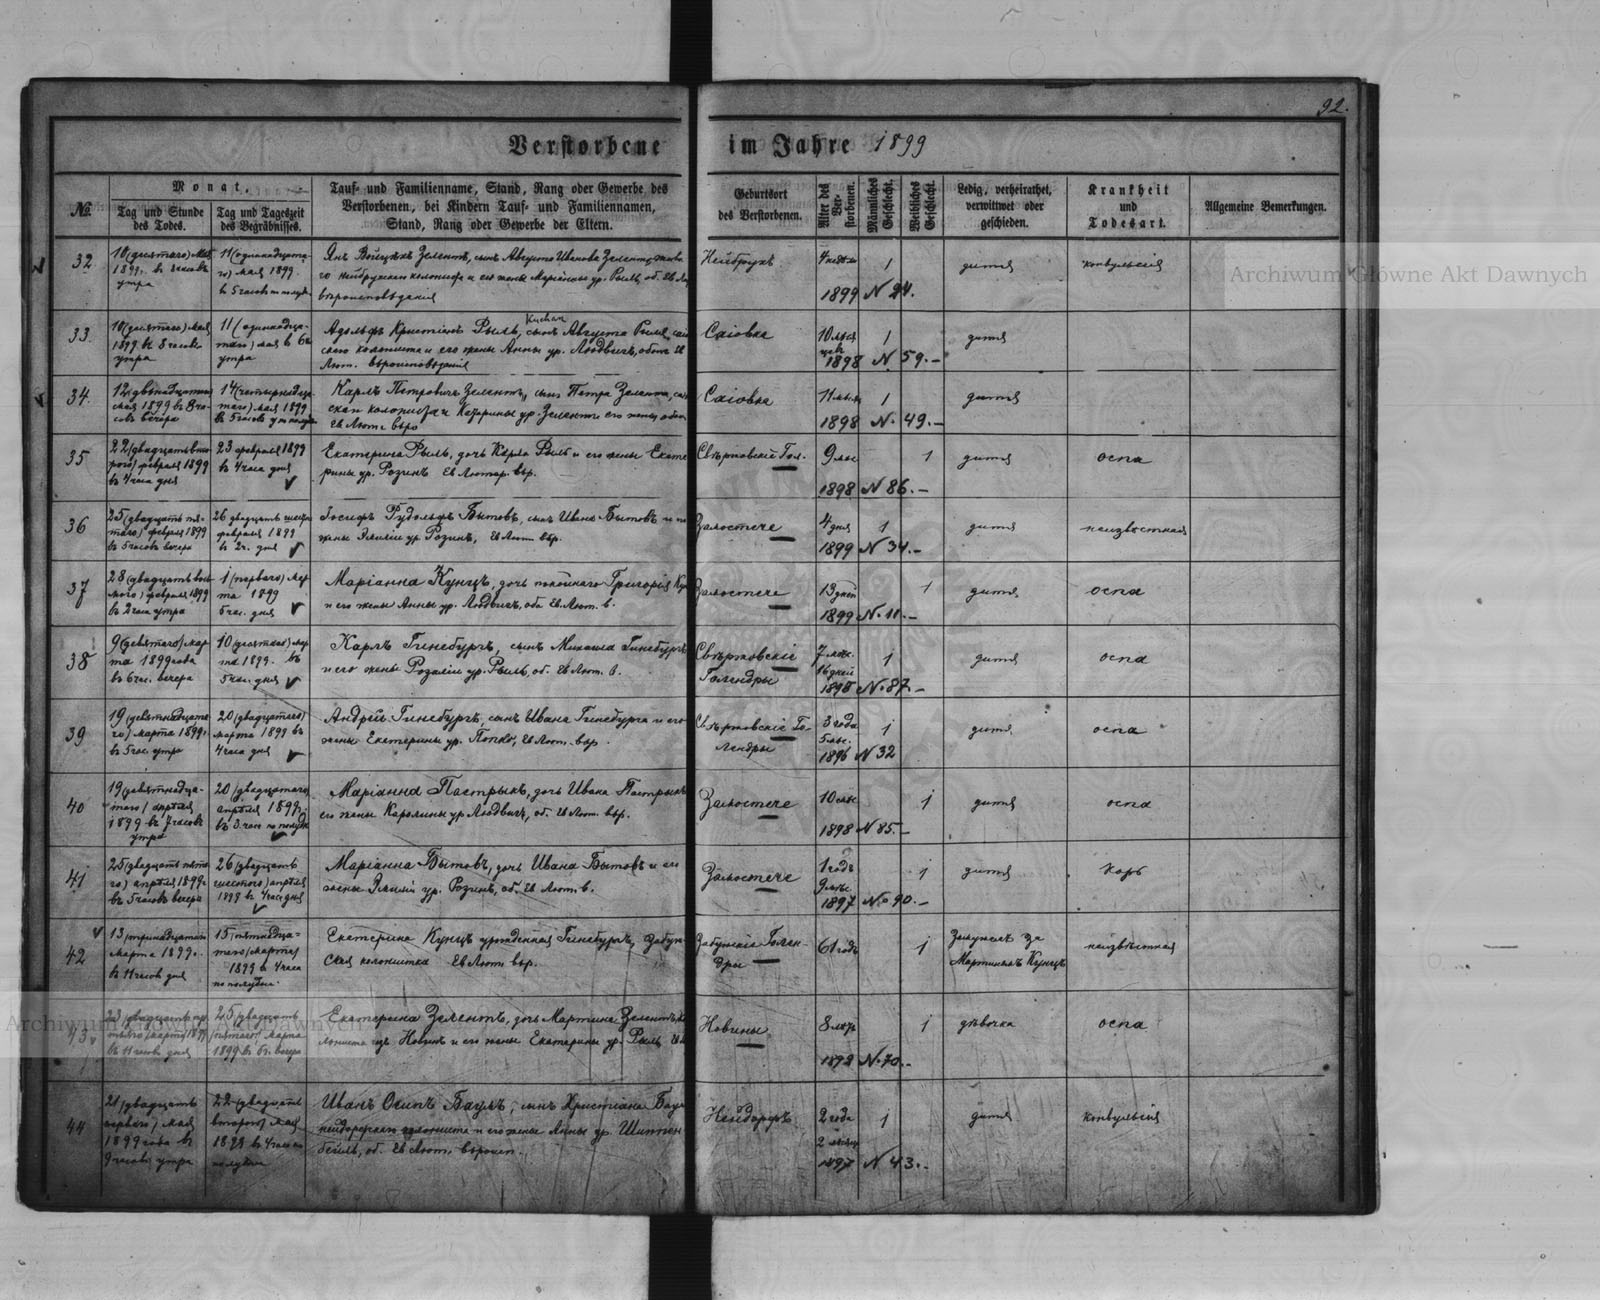 92.
Verstorbene im Jahre 1899
Monat.
№.
Tag und Stunde
des Todes.
Tag und Tageszeit
des Begräbnisses.
Tauf- und Familienname, Stand, Rang oder Gewerbe des
Verstorbenen, bei Kindern Tauf- und Familiennamen,
Stand, Rang oder Gewerbe der Eltern.
Geburtsort
des Verstorbenen.
Alter des
Ver-
storbenen.
Männliches
Geschlecht.
Weibliches
Geschlecht.
Ledig, verheirathet,
verwittwet oder
geschieden.
Krankheit
und
Todesart.
Allgemeine Bemerkungen.
32
10 (десятаго) Мая
1899. въ 8 часовъ
утра
11 (одинадцата-
го) мая 1899.
въ 5 часов по полуд
Янъ Войцехъ Зелентъ, сынъ Августа Иванова Зелента,
го нейбрухскаго колониста и его жены Маріанны ур. Рыль, об. Ев. Лют.
вѣроисповѣданія
Нейбрухъ.
1
1899 N 24.
дитя
конвульсія
33
10 (десятаго) мая
1899 въ 8 часовъ
утра
11 (одинадца-
таго) мая въ 6
утра
Kuchar
Адольфъ Кристіанъ Рыль, сынъ Августа Рыля,
скаго колониста и его жены Анны ур. Людвигъ, обоихъ Ев.
Лют. вѣроисповѣданія
Саіовка
10 мѣся
цев
1
1898 N 59.-
дитя
34.
12 (двѣнадцатаго
мая 1899 въ 8 ча-
совъ вечера
14 (четырнадца-
таго) мая 1899
въ 5 часовъ
Карлъ Петровичъ Зелентъ, сынъ Петра Зелента,
скаго колониста и Катарины ур. Зелентъ его жены,
Ев. Лют. вѣро
Саіовка
11 мѣся
1
1898 N. 49.-
дитя
35
22 (двадцать вто-
рого) февраля 1899
въ 4 часа дня
23 февраля 1899
въ 4 часа дня
Екатерина Рыль, дочь Карла Рыль и его жены Екате
рины ур. Розинъ, Ев. Лютер. вѣр.
Свѣржовскіе Гол.
9 мѣс
1
1898 N 86.-
дитя
оспа
36
25 (двадцать пя-
таго) февраля 1899
въ 5 часовъ вечера
26 двадцать шест
февраля 1899
въ 2 ч. дня
Іосифъ Рудольфъ Бытовъ, сынъ Ивана Бытовъ и его
жены Эмиліи ур. Розинъ, Ев. Лют. вѣр.
Замостече
4 дня
1
1899 N 34.-
дитя
неизвѣстная
37
28 (двадцать вось-
мого) февраля 1899
въ 2 часа утра
1 (перваго) мар
та 1899
5 час. дня
Маріанна Кунцъ, дочь покойнаго Григорія Кун
и его жены Анны ур. Людвигъ, оба Ев. Лют. в.
Замостече
13 дней
1
1899 N. 11.-
дитя
оспа
38
9 (девятаго) мар
та 1899 года
въ 6 час. вечера
10 (десятаго) мар
та 1899. въ
5 час. дня
Карлъ Гинсбургъ, сынъ Михаила Гинсбургъ
и его жены Розаліи ур. Рыль, об. Ев. Лют. в.
Свѣржовскіе
Голендры
7 мѣс.
16 дней
1
1898 N. 87.-
дитя
оспа
39
19 (девятнадцата-
го) марта 1899.
въ 5 час. утра
20 (двадцатаго)
марта 1899 въ
4 часа дня
Андрей Гинсбургъ, сынъ Ивана Гинсбурга и его
жены Екатерины ур. Попко, Ев. Лют. вѣр.
Свѣржовскіе Го-
лендры
3 года
5 мѣс.
1
1896 N 32
дитя
оспа
40
19 (девятнадца-
таго) апрѣля
1899 въ 7 часовъ
утра
20 (двадцатаго)
апрѣля 1899.
въ 3 часа по полудн
Маріанна Пастрыкъ, дочь Ивана Пастрыкъ
его жены Каролины ур. Людвигъ, об. Ев. Лют. вѣр.
Замостече
10 мѣс
1
1898 N 85.-
дитя
оспа
41
25 (двадцать пята-
го) апрѣля 1899.
въ 5 часовъ вечера
26 (двадцать
шестого) апрѣля
1899 въ 4 час дня
Маріанна Бытовъ, дочь Ивана Бытовъ и его
жены Эмиліи ур. Розинъ, об. Ев. Лют. в.
Замостече
1 годъ
9 мѣс.
1
1897 N. 90.-
дитя
Корь
42
13 (тринадцатаго
марта 1899.
въ 11 часов дня
15 (пятнадца-
таго) марта
1899 в 4 часа
по полудни.
Екатерина Кунцъ урожденная Гинсбургъ, Забуж-
ская колонистка Ев. Лют. вѣр.
Забужскіе Голен-
дры
61 годъ
1
Замужемъ за
Мартиномъ Кунцъ
неизвѣстная
43
въ 11 часовъ дня
25 (двадцать
пятаго) марта
1899 въ 6 ч. вечера
Екатерина Зелентъ, дочь Мартина Зелентъ, ко
лониста изъ Новинъ и его жены Екатерины ур. Рыль Ев.
Новины
8 лѣтъ
1
N. 70.-
дѣвочка
оспа
44
21 (двадцать
перваго) мая
1899 года въ
9 часовъ утра
22 (двадцать
второго) мая
1899 въ 4 часа по
полудни
Иванъ Осипъ Баумъ, сынъ Христіана Баум
нейдорфскаго колониста и его жены Анны ур. Шиппен
бейль, об. Ев. Лют. вѣроисп.
Нейдорфъ.
2 года
2 мѣсяц
1
1897 N 43.-
дитя
конвульсія
Archiwum Główne Akt Dawnych
Archiwum Główne Akt Dawnych